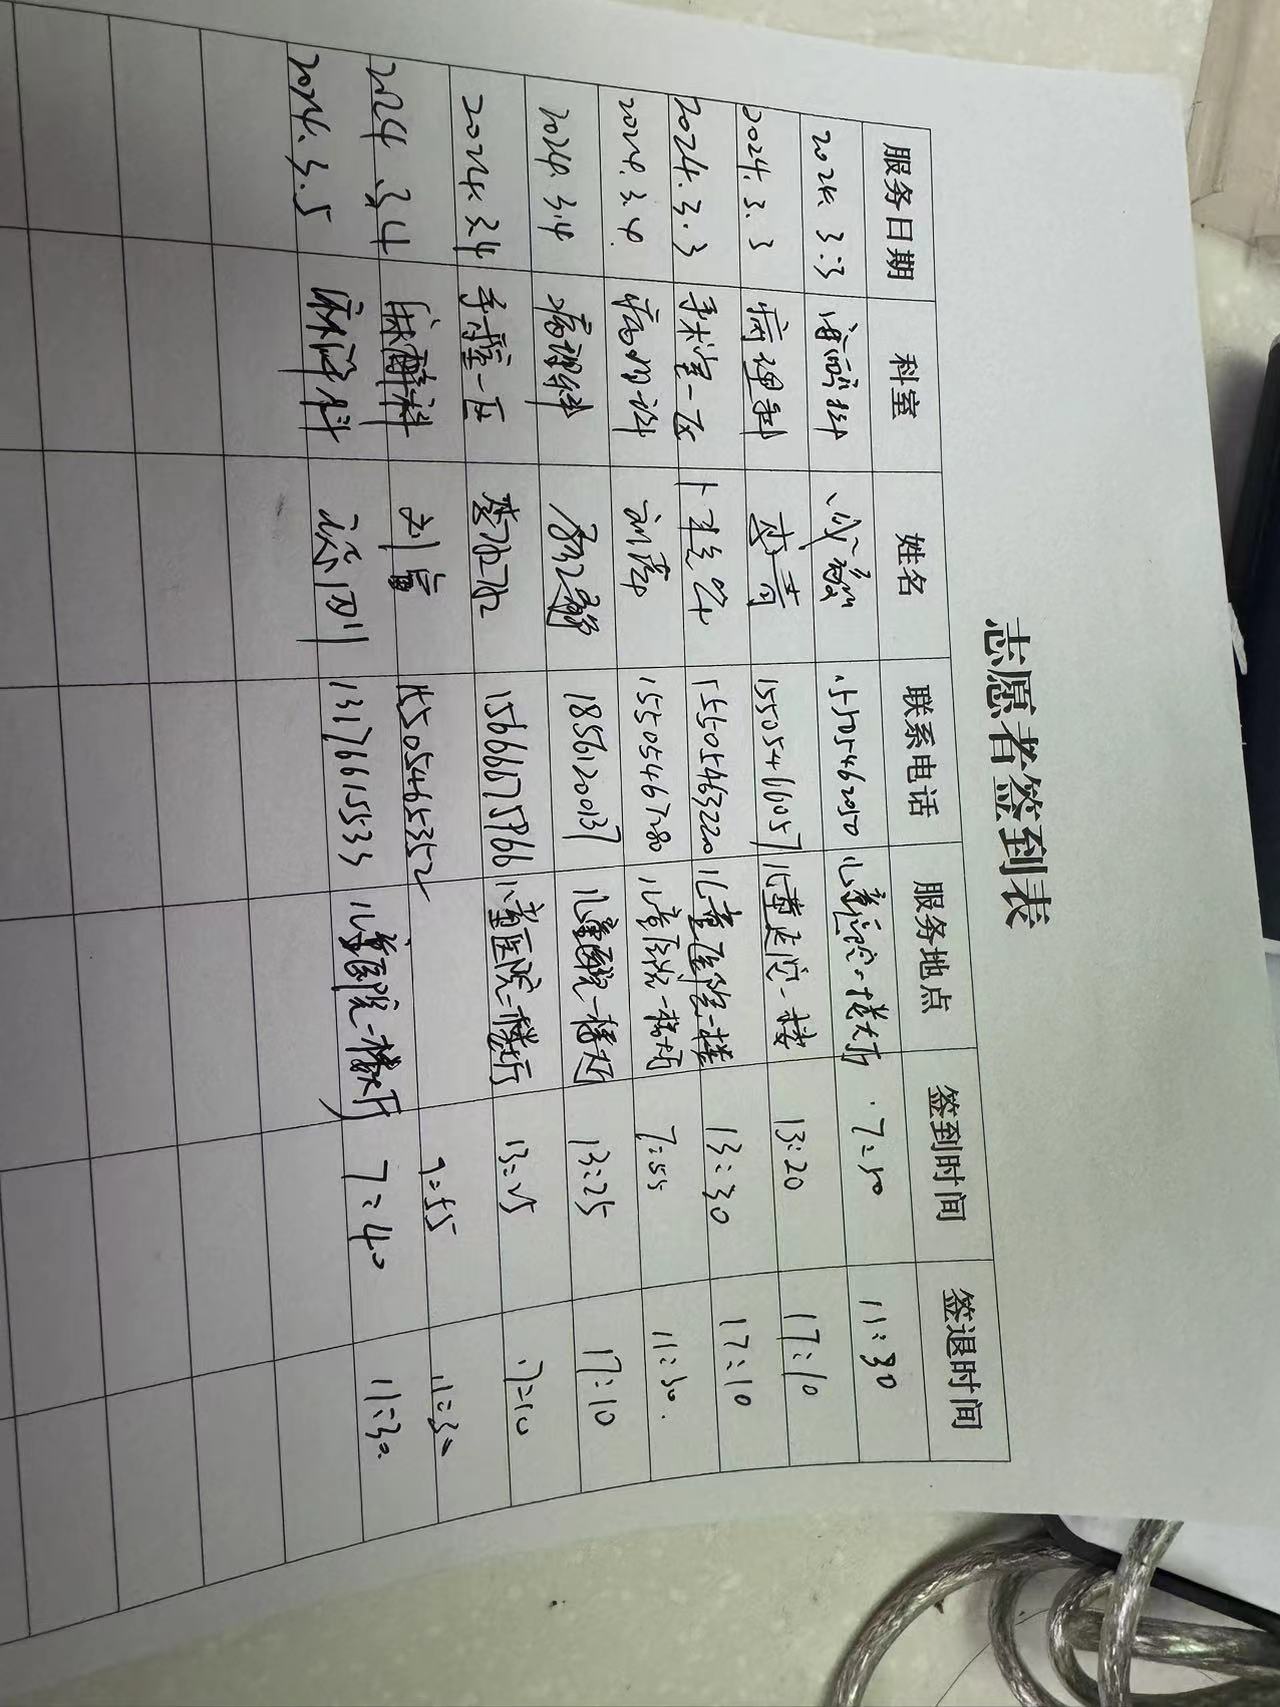 志愿者签到表
服务日期 科室 姓名 联系电话 服务地点 签到时间 签退时间
2024.3.3 15505462050 儿童医院一楼大厅 7:50 11:30
2024.3.3 病理科 李青 15505466057 儿童医院一楼 13:20 17:10
2024.3.3 手术室一区 15505463220 儿童医院一楼 13:30 17:10
2024.3.4. 病理科 15505467280 儿童医院一楼大厅 7:55 11:30.
2024.3.4 病理科 18561200137 儿童医院一楼大厅 13:25 17:10
2024.3.4 手术室一区 15666175966 儿童医院一楼大厅 13:25 17:10
2024.3.4 麻醉科 15505465352 7:55 11:30
2024.3.5 麻醉科 徐川 13176615533 儿童医院一楼大厅 7:40 11:30.